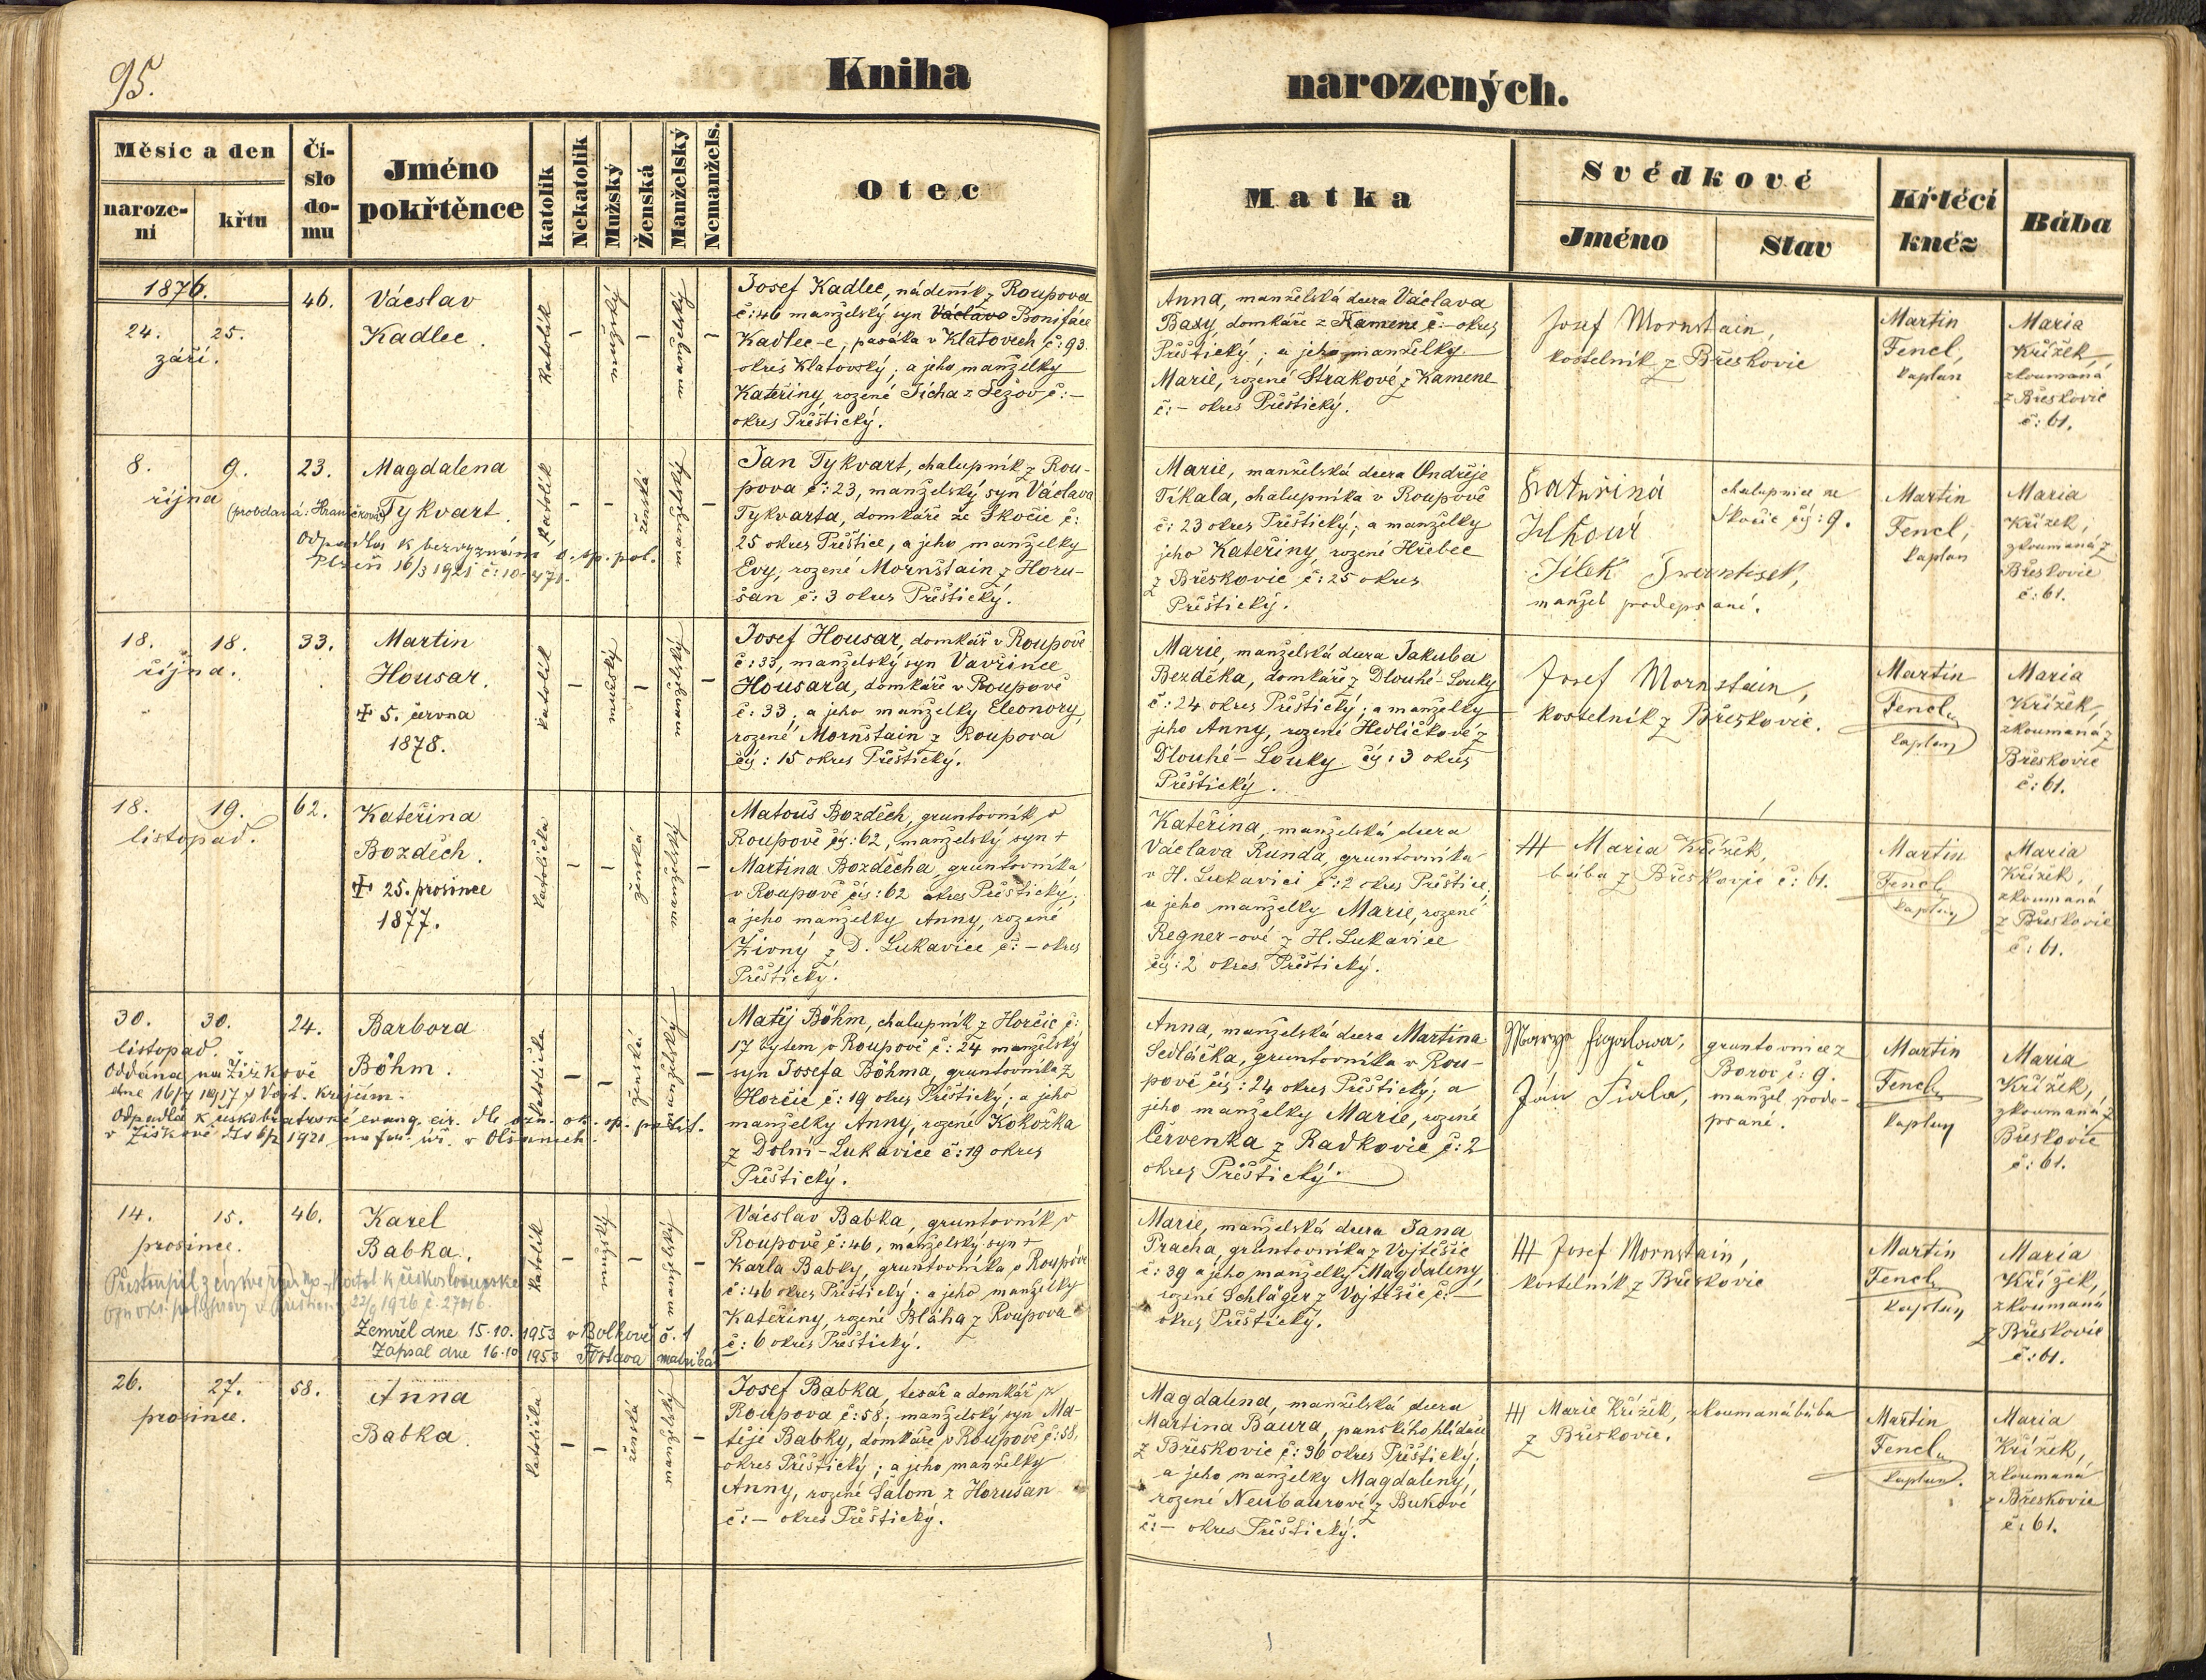 95.
Kniha narozených.
Měsíc a den
naroze-
ní
křtu
Čí-
slo
do-
mu
Jméno
pokřtěnce
katolík
Nekatolík
Mužský
Ženská
Manželský
Nemanžels.
Otec
Matka
Svědkové
Jméno
Stav
Křtící
kněz
Bába
1876.
24. 25.
září.
46.
Václav
Kadlec.
katolík
–
mužský
–
manželský
–
Josef Kadlec, nádeník z Roupova
č: 46 manželský syn Václava Bonifáce
Kadlec-e, pasáka v Klatovech č: 93.
okres Klatovský; a jeho manželky
Kateřiny, rozené Tícha z Ležov č: –
okres Přeštický.
Anna, manželská dcera Václava
Baxy, domkáře z Kamene č: – okres
Přeštický; a jeho manželky
Marie, rozené Strakové z Kamene
č: – okres Přeštický.
Josef Mornstain,
kostelník z Břeskovic
Martin
Fencl,
kaplan
Maria
Křížek,
zkoumaná
z Břeskovic
č: 61.
8. 9.
října
23.
Magdalena
Tykvart.
(provdaná: Hraničková)
Odpadla k bezvyznání o. sp. pol.
Plzeň 16/3 1921 č: 10.471.
katolík
–
–
ženská
manželský
–
Jan Tykvart, chalupník z Rou-
pova č: 23, manželský syn Václava
Tykvarta, domkáře ze Skočic č:
25 okres Přeštice, a jeho manželky
Evy, rozené Mornštain z Horu-
šan č: 3 okres Přeštický.
Marie, manželská dcera Ondřeje
Tíkala, chalupníka v Roupově
č: 23 okres Přeštický; a manželky
jeho Kateřiny, rozené Hřebec
z Břeskovic č: 25 okres
Přeštický.
Kateřina
Jílkova
Jílek
manžel podepsané.
chalupnice ze
Skočic čís: 9.
Martin
Fencl,
kaplan
Maria
Křížek,
zkoumaná z
Břeskovic
č: 61.
18. 18.
října.
33.
Martin
Housar.
✝ 5. června
1878.
katolík
–
mužský
–
manželský
–
Josef Housar, domkář v Roupově
č: 33, manželský syn Vavřince
Housara, domkáře v Roupově
č: 33, a jeho manželky Eleonory,
rozené Mornštain z Roupova
čís: 15 okres Přeštický.
Marie, manželská dcera Jakuba
Bezděka, domkáře z Dlouhé-Louky
č: 24 okres Přeštický; a manželky
jeho Anny, rozené Hedličkové z
Dlouhé-Louky čís: 3 okres
Přeštický.
Josef Mornstain,
kostelník z Břeskovic.
Martin
Fencl
kaplan
Maria
Křížek,
zkoumaná z
Břeskovic
č: 61.
18. 19.
listopad.
62.
Kateřina
Bozděch.
✝ 25. prosince
1877.
katolička
–
–
ženská
manželský
–
Matouš Bozděch, gruntovník v
Roupově čís: 62, manželský syn +
Martina Bozděcha, gruntovníka
v Roupově čís: 62 okres Přeštický;
a jeho manželky Anny, rozené
Živný z D. Lukavice č: – okres
Přeštický.
Kateřina, manželská dcera
Václava Runda, gruntovníka
v H. Lukavici č: 2 okres Přeštice;
a jeho manželky Marie, rozené
Regner-ové z H. Lukavice
čís: 2 okres Přeštický.
+++ Maria Křížek,
bába z Břeskovic č: 61.
Martin
Fencl
kaplan
Maria
Křížek,
zkoumaná
z Břeskovic
č: 61.
30. 30.
listopad.
24.
Barbora
Böhm.
Oddána na Žižkově
dne 16/7 1917 s Vojt. Krejčím.
Odpadla k českobratrské evang. cír. dle ozn. ok. sp. polit.
v Žižkově 1921 na far. úř. v Olšanech.
katolička
–
–
ženská
manželský
–
Matěj Böhm, chalupník z Horčic č:
17 bytem v Roupově č: 24 manželský
syn Josefa Böhma, gruntovníka z
Horčic č: 19 okres Přeštický; a jeho
manželky Anny, rozené Kokoška
z Dolní-Lukavice č: 19 okres
Přeštický.
Anna, manželská dcera Martina
Sedláčka, gruntovníka v Rou-
pově čís: 24 okres Přeštický; a
jeho manželky Marie, rozené
Červenka z Radkovic č: 2
okres Přeštický.
Marye
Ján
gruntovnice z
Borov č: 9.
manžel pode-
psané.
Martin
Fencl
kaplan
Maria
Křížek,
zkoumaná z
Břeskovic
č: 61.
14. 15.
prosince.
46.
Karel
Babka.
Přestoupil z církve řím. katol k československé
22/9 1926 č. 27016.
Zemřel dne 15.10. 1953 v Bolkově č. 1
Zapsal dne 16.10 1953 matrikář
katolík
–
mužský
–
manželský
–
Václav Babka, gruntovník v
Roupově č: 46, manželský syn +
Karla Babky, gruntovníka v Roupově
č: 46 okres Přeštický; a jeho manželky
Kateřiny, rozené Bláha z Roupova
č: 6 okres Přeštický.
Marie, manželská dcera Jana
Pracha, gruntovníka z Vojtěšic
č: 39 a jeho manželky Magdaleny,
rozené Schläger z Vojtěšic č: –
okres Přeštický.
+++ Josef Mornstain,
kostelník z Břeskovic
Martin
Fencl
kaplan
Maria
Křížek,
zkoumaná
z Břeskovic
č: 61.
26. 27.
prosince.
58.
Anna
Babka.
katolička
–
–
ženská
manželský
–
Josef Babka, tesař a domkář z
Roupova č: 58; manželský syn Ma-
těje Babky, domkáře v Roupově č: 58,
okres Přeštický; a jeho manželky
Anny, rozené Šalom z Horušan
č: – okres Přeštický.
Magdalena, manželská dcera
Martina Baura, panského hlídače
z Břeskovic č: 36 okres Přeštický;
a jeho manželky Magdaleny,
rozené Neubaurové z Bukové
č: – okres Přeštický.
+++ Marie Křížek, zkoumaná bába
z Břeskovic.
Martin
Fencl
kaplan.
Maria
Křížek,
zkoumaná
z Břeskovic
č: 61.